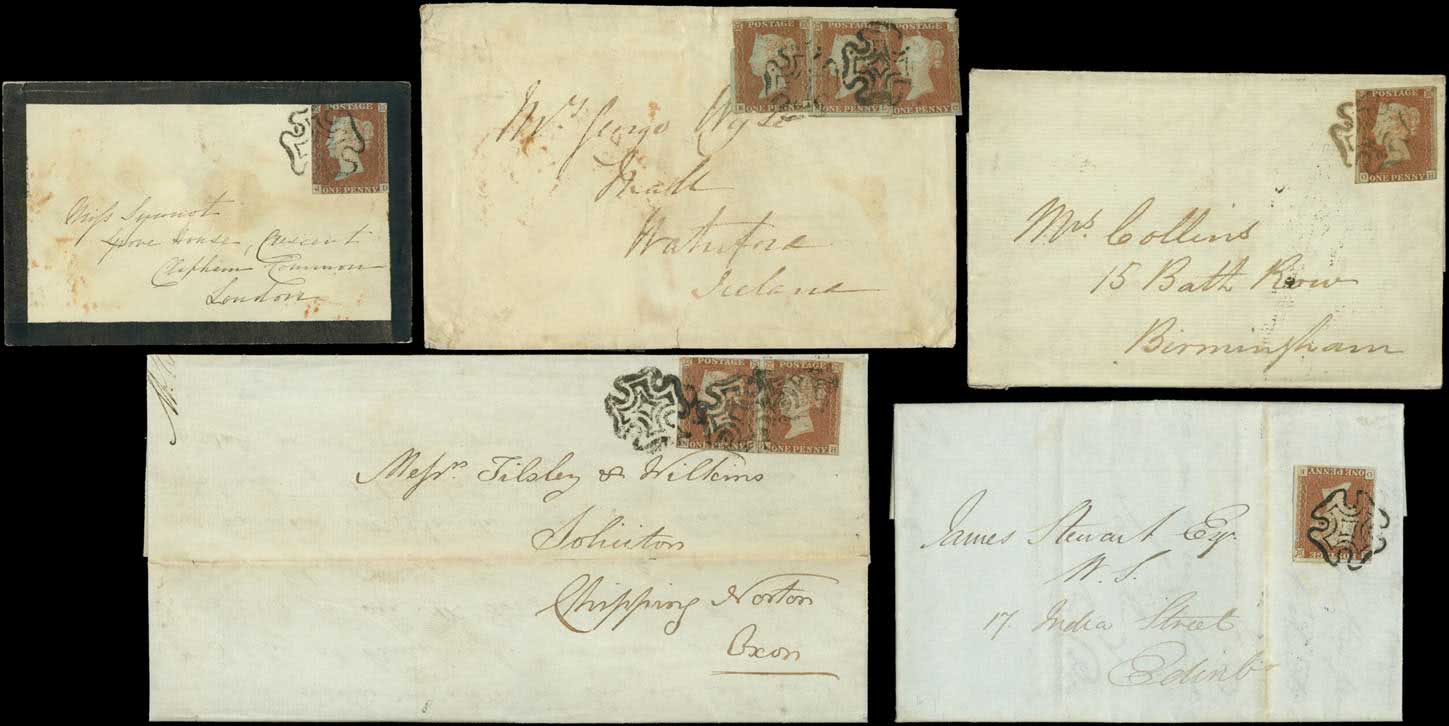 POSTAGE
ONE PENNY
Miss Synnot
Grove House, Crescent
Clapham Common
London
POSTAGE
POSTAGE
POSTAGE
ONE PENNY
ONE PENNY
ONE PENNY
Mrs George Wyse
Mall
Waterford
Ireland
POSTAGE
ONE PENNY
Mrs Collins
15 Bath Row
Birmingham
POSTAGE
POSTAGE
ONE PENNY
ONE PENNY
Messrs Tilsley & Wilkins
Solicitors
Chipping Norton
Oxon
ONE PENNY
James Stewart Esqr
W. S.
17 India Street
Edinbr